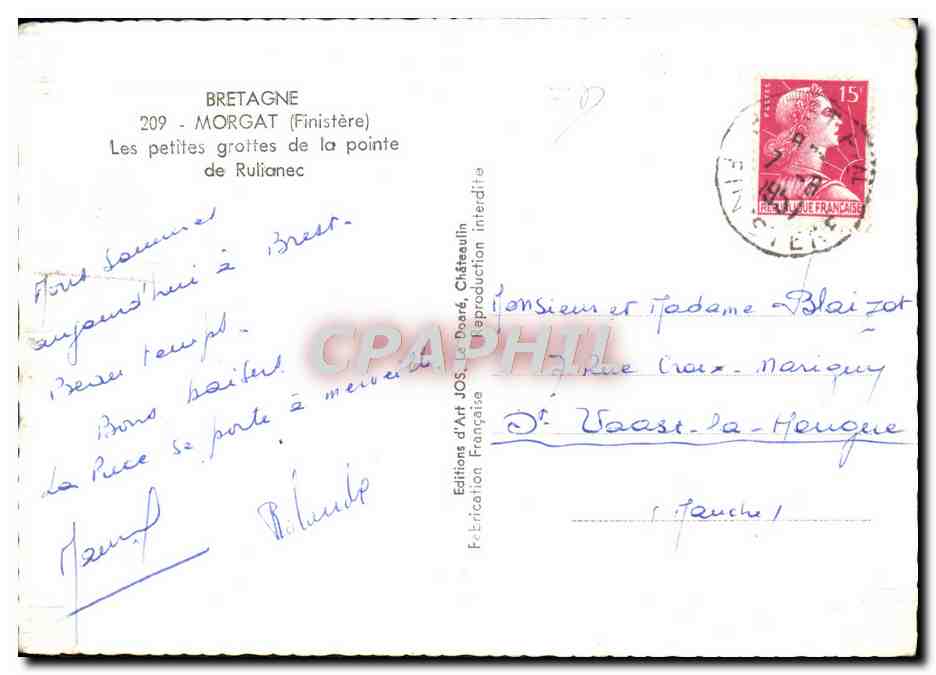 BRETAGNE
209 - MORGAT (Finistère)
Les petites grottes de la pointe
de Rulianec
Nous sommes
aujourd'hui à Brest.
Beau temps.
Bons baisers
La Puce se porte à merveille
Rolande
Editions d'Art JOS, Le Doaré, Châteaulin
Fabrication Française Reproduction interdite
POSTES
15F
REPUBLIQUE FRANÇAISE
FINISTERE
Monsieur et Madame Blaizot
7 Rue Croix-Marigny
St Vaast-la-Hougue
(Manche)
CPAPHIL